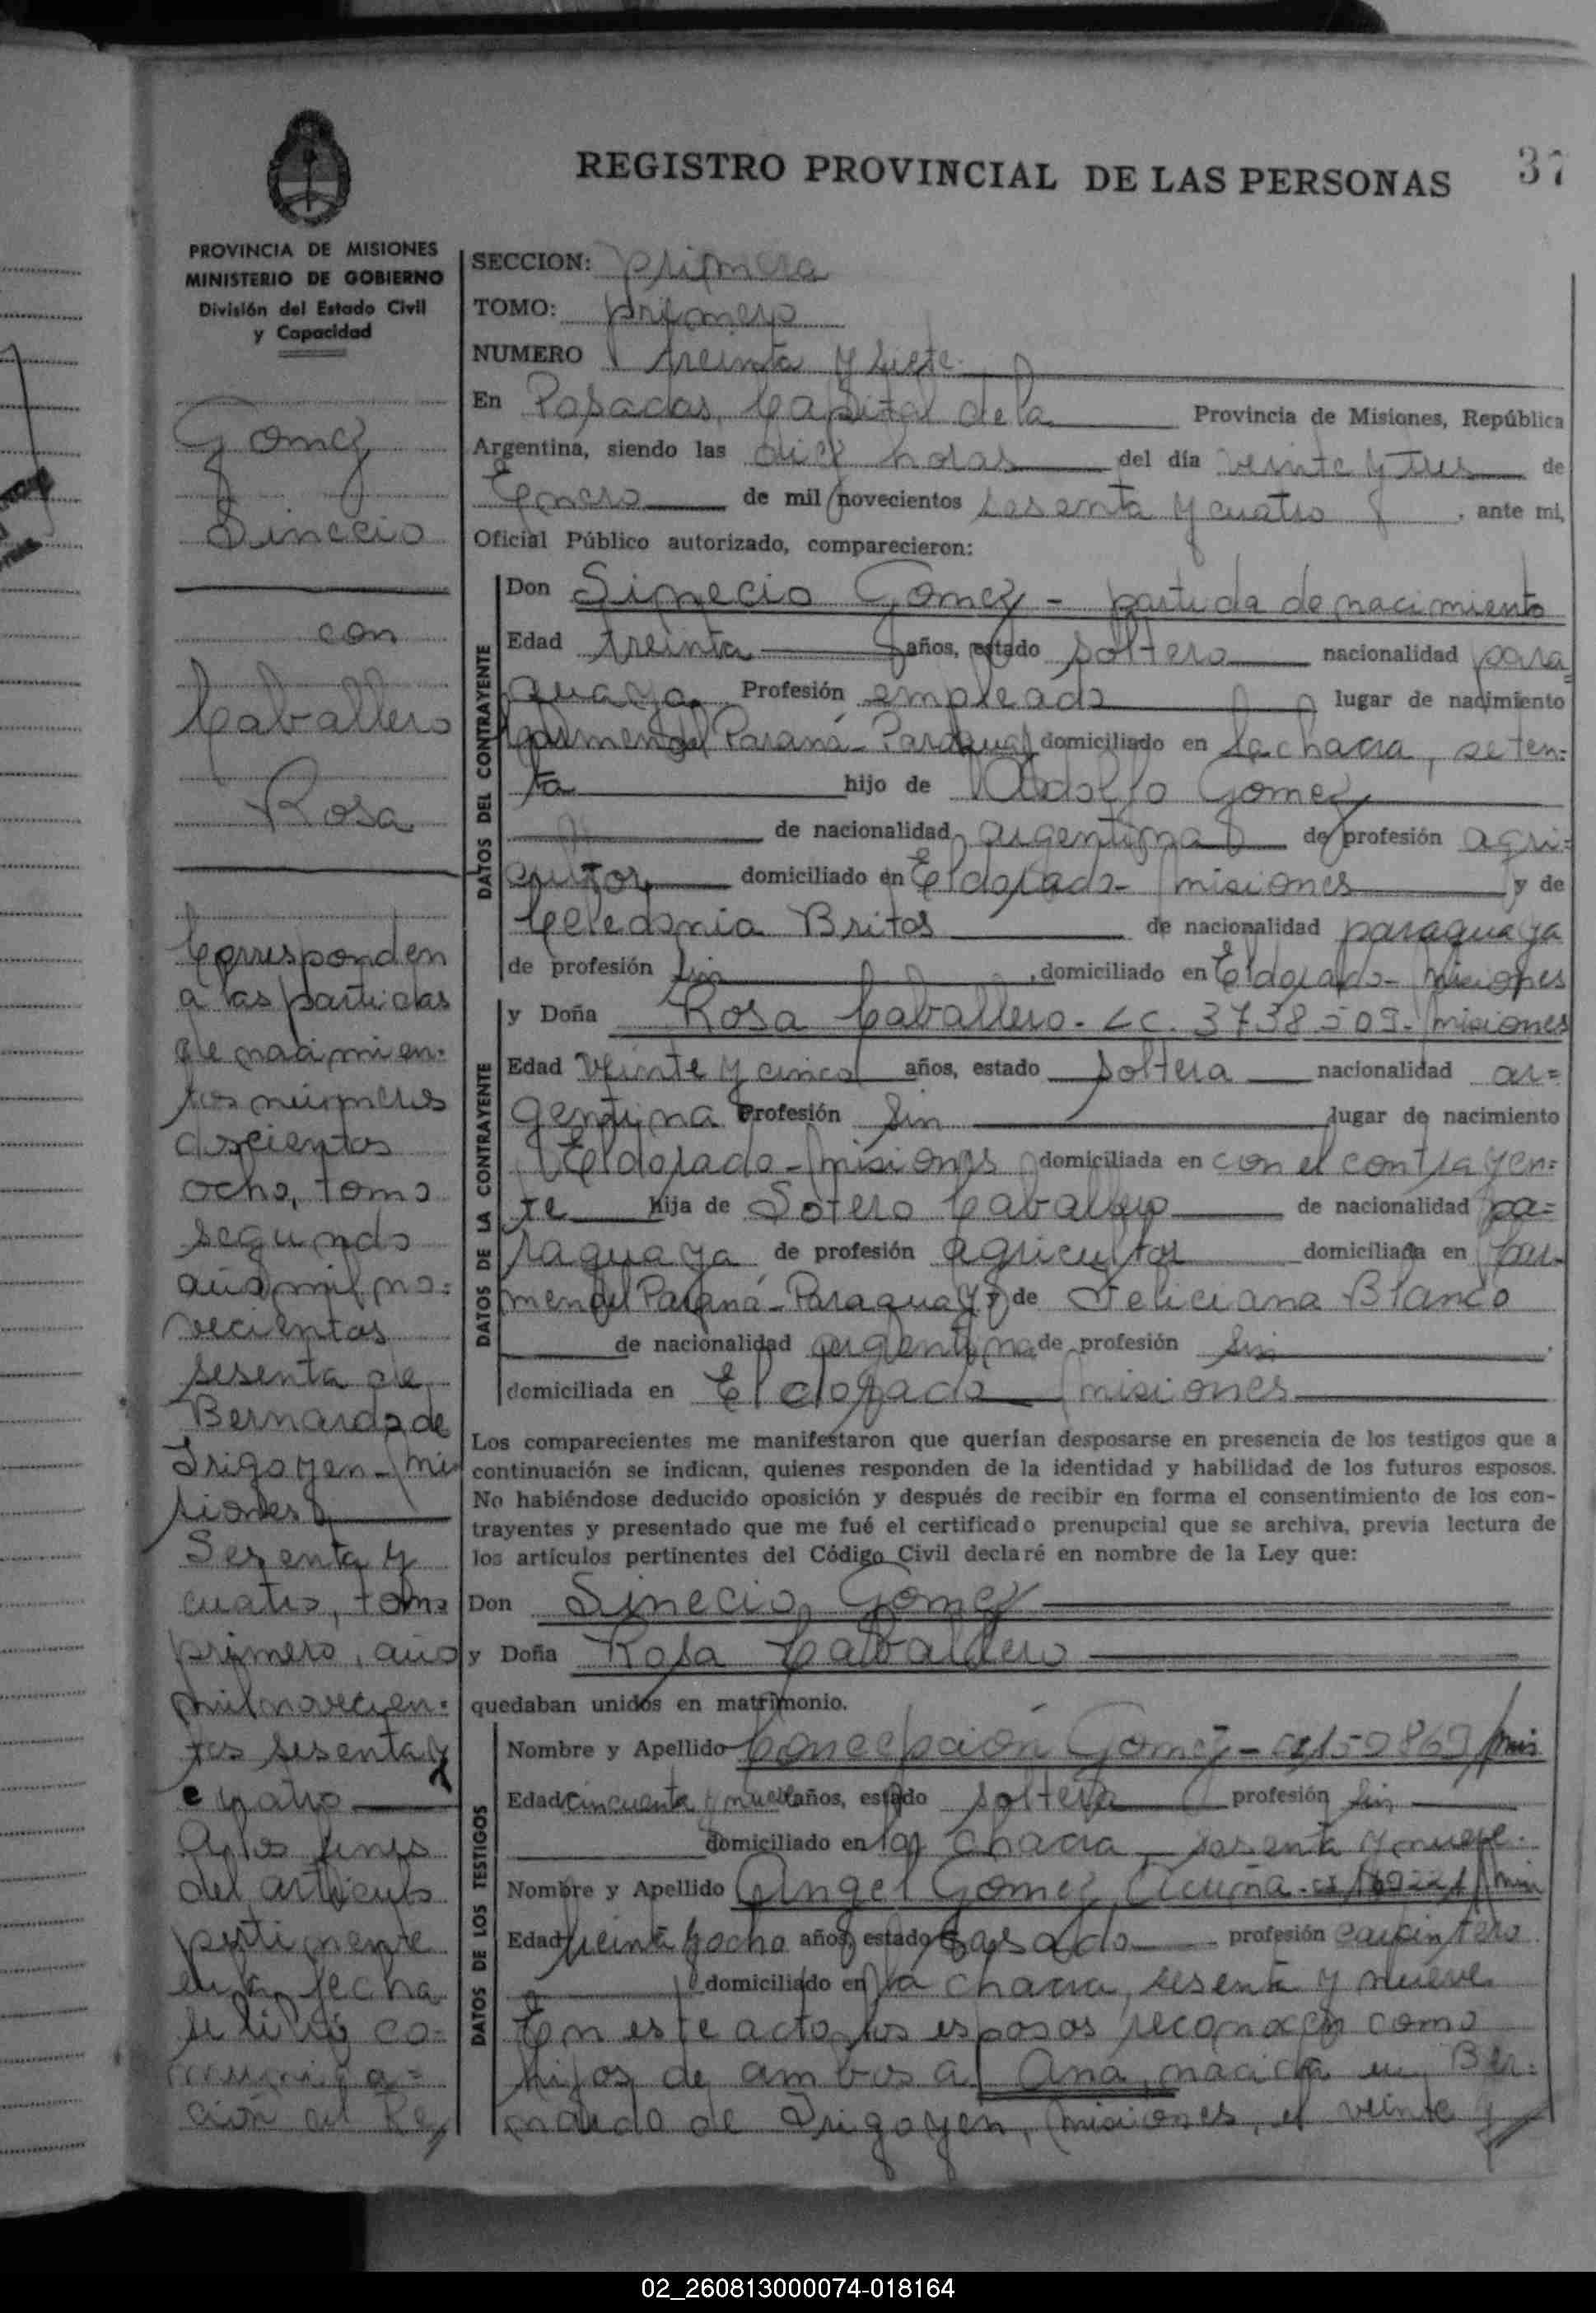 REGISTRO PROVINCIAL DE LAS PERSONAS
37
PROVINCIA DE MISIONES
MINISTERIO DE GOBIERNO
División del Estado Civil
y Capacidad
Gomez
Sinecio
con
Caballero
Rosa
Corresponden
a las partidas
de nacimien=
tos números
doscientos
ocho, tomo
segundo
año mil no=
vecientos
sesenta de
Bernardo de
Irigoyen - Mi
siones
Sesenta y
cuatro, tomo
primero, año
mil novecien=
tos sesenta y
cuatro
A los fines
del artículo
pertinente
en la fecha
se libró co=
munica=
ción al Re
SECCION: primera
TOMO: primero
NUMERO treinta y siete
En Posadas, Capital de la Provincia de Misiones, República
Argentina, siendo las diez horas del día veinte y tres de
Enero de mil novecientos sesenta y cuatro, ante mi,
Oficial Público autorizado, comparecieron:
DATOS DEL CONTRAYENTE
Don Sinecio Gomez - partida de nacimiento
Edad treinta años, estado soltero nacionalidad para
guaya Profesión empleado lugar de nacimiento
Carmen del Paraná - Paraguay domiciliado en la chacra, seten=
ta hijo de Adolfo Gomez
de nacionalidad argentina de profesión agri=
cultor domiciliado en Eldorado - Misiones y de
Celedonia Britos de nacionalidad paraguaya
de profesión sin, domiciliado en Eldorado - Misiones
DATOS DE LA CONTRAYENTE
y Doña Rosa Caballero - LC. 3738509 - Misiones
Edad veinte y cinco años, estado soltera nacionalidad ar=
gentina Profesión sin lugar de nacimiento
Eldorado - Misiones domiciliada en con el contrayen=
te hija de Sotero Caballero de nacionalidad pa=
raguaya de profesión agricultor domiciliada en Car-
men del Paraná - Paraguay y de Feliciana Blanco
de nacionalidad argentina de profesión sin
domiciliada en Eldorado Misiones
Los comparecientes me manifestaron que querían desposarse en presencia de los testigos que a
continuación se indican, quienes responden de la identidad y habilidad de los futuros esposos.
No habiéndose deducido oposición y después de recibir en forma el consentimiento de los con-
trayentes y presentado que me fué el certificado prenupcial que se archiva, previa lectura de
los artículos pertinentes del Código Civil declaré en nombre de la Ley que:
Don Sinecio Gomez
y Doña Rosa Caballero
quedaban unidos en matrimonio.
DATOS DE LOS TESTIGOS
Nombre y Apellido Concepción Gomez - CI 159869 Mis
Edad cincuenta y nueve años, estado soltera profesión sin
domiciliado en la chacra sesenta y nueve
Nombre y Apellido Angel Gomez Acuña - Mis
Edad treinta y ocho años, estado casado profesión carpintero
domiciliado en la chacra, sesenta y nueve
En este acto los esposos reconocen como
hijos de ambos a Ana, nacida en Ber=
nardo de Irigoyen, Misiones, el veinte y
02_260813000074-018164